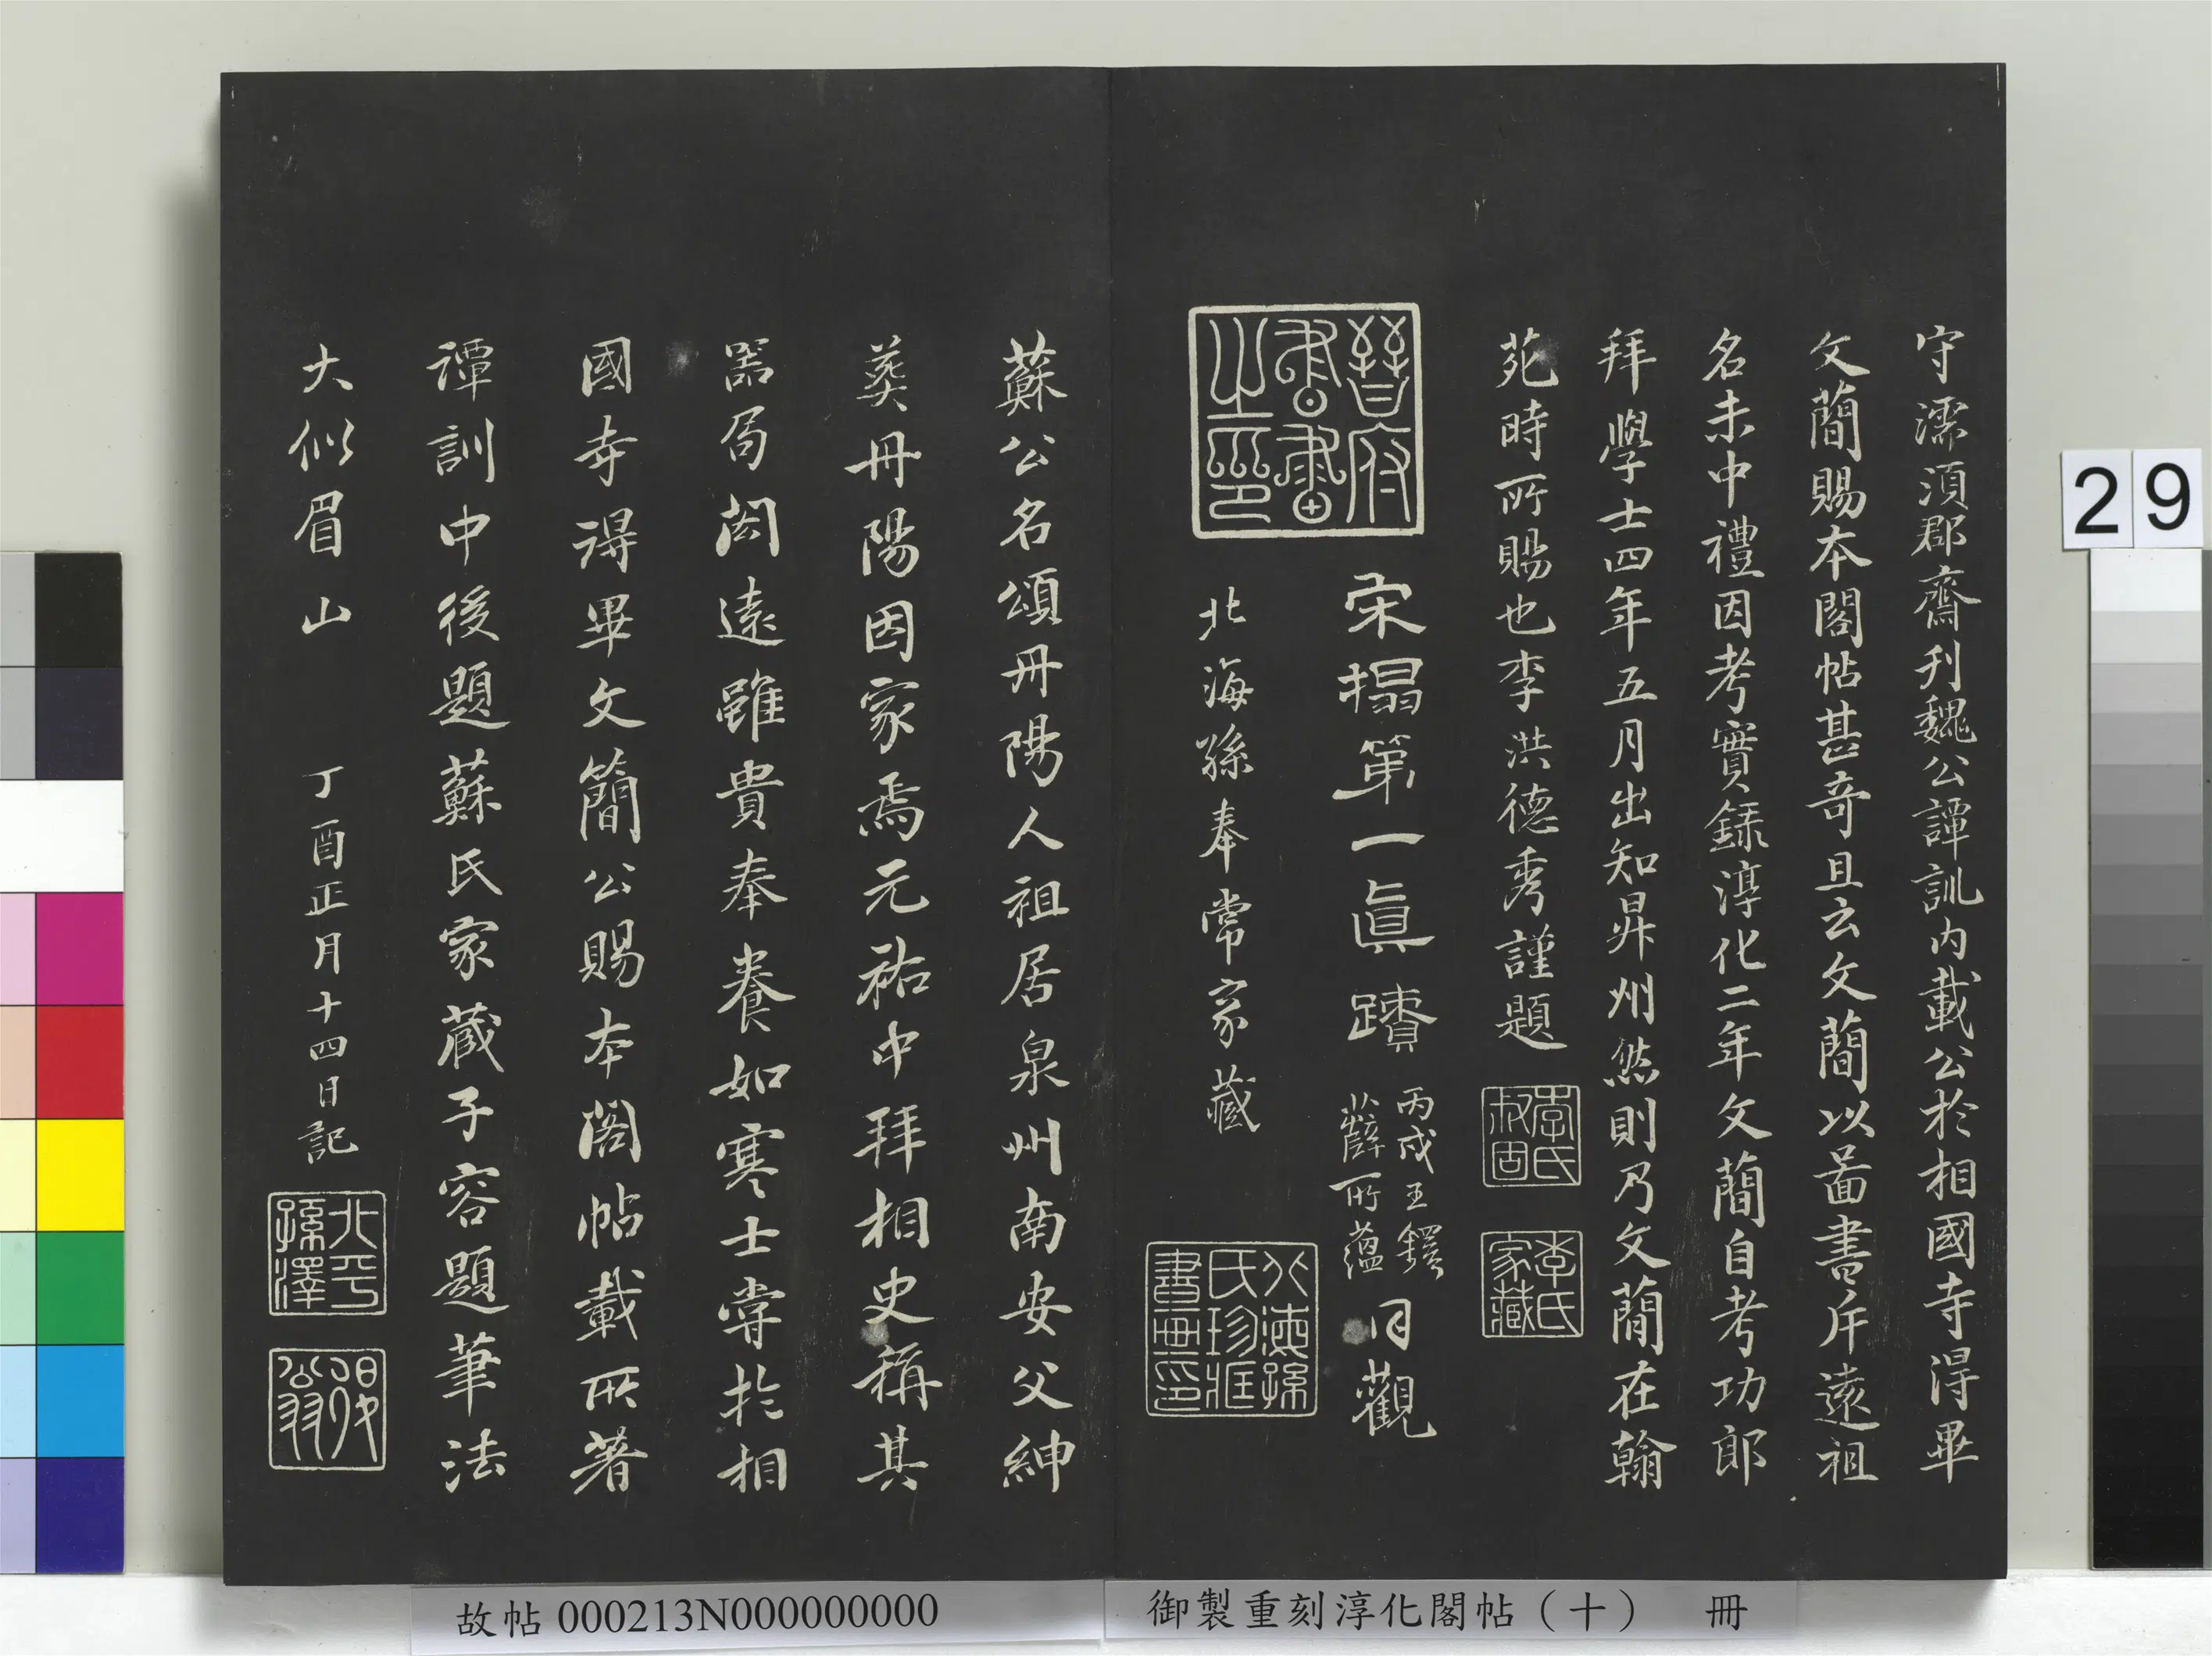 守濡須郡齋刋魏公譚訓内載公於相國寺得畢
文簡賜本閣帖甚奇且云文簡以啚書斥遠祖
名未中禮因考實録淳化二年文簡自考功郎
拜學士四年五月出知昇州然則乃文簡在翰
苑時所賜也李洪德秀謹題
李氏叔固
李氏家藏
晉府書畫之印
宋搨第一眞蹟
丙戌王鐸
薛所蘊
同觀
北海孫奉常家藏
北海孫氏珍藏書畫印
蘇公名頌丹陽人祖居泉州南安父紳
葬丹陽因家焉元祐中拜相史稱其
器局閎遠雖貴奉養如寒士嘗於相
國寺得畢文簡公賜本閣帖載所著
譚訓中後題蘇氏家藏子容題筆法
大似眉山 丁酉正月十四日記
北平孫澤
退翁
29
故帖 000213N000000000
御製重刻淳化閣帖（十） 冊